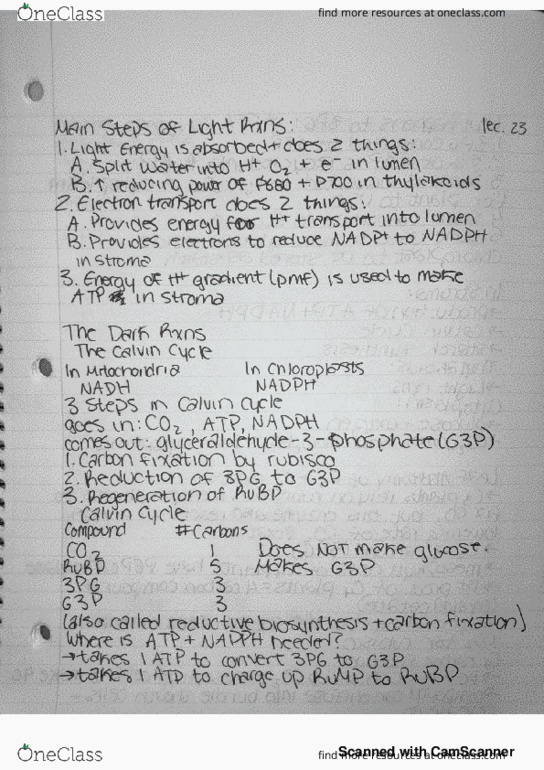 OneClass
find more resources at oneclass.com
Main Steps of Light Rxns: lec. 23
1. Light Energy is absorbed + does 2 things:
A. Split water into H+ O2 + e- in lumen
B. ↑ reducing power of P680 + P700 in thylakoids
2. Electron transport does 2 things:
A. Provides energy for H+ transport into lumen
B. Provides electrons to reduce NADP+ to NADPH
in stroma
3. Energy of H+ gradient (pmf) is used to make
ATP in stroma
The Dark Rxns
The Calvin Cycle
In Mitochondria In Chloroplasts
NADH NADPH
3 Steps in Calvin Cycle
goes in: CO2, ATP, NADPH
comes out: glyceraldehyde-3-phosphate (G3P)
1. Carbon fixation by rubisco
2. Reduction of 3PG to G3P
3. Regeneration of RuBP
Calvin Cycle
Compound #Carbons
CO2 1 Does NOT make glucose.
RuBP 5 Makes G3P
3PG 3
G3P 3
(also called reductive biosynthesis + carbon fixation)
Where is ATP + NADPH needed?
→takes 1 ATP to convert 3PG to G3P
→takes 1 ATP to charge up RuMP to RuBP
OneClass
find more resources at oneclass.com
Scanned with CamScanner